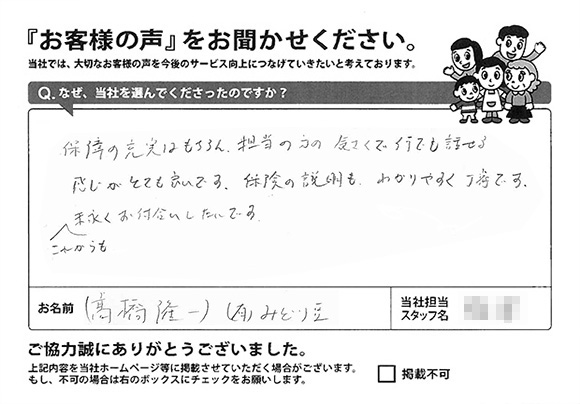 『お客様の声』をお聞かせください。
当社では、大切なお客様の声を今後のサービス向上につなげていきたいと考えております。
Q. なぜ、当社を選んでくださったのですか？
保障の充実はもちろん、担当の方の気さくで何でも話せる
感じがとても良いです、保険の説明も、わかりやすく丁寧です。
これからも
末永くお付合いしたいです。
お名前 (髙橋隆一) (有)みどり豆
当社担当
スタッフ名
ご協力誠にありがとうございました。
上記内容を当社ホームページ等に掲載させていただく場合がございます。
もし、不可の場合は右のボックスにチェックをお願いします。
掲載不可